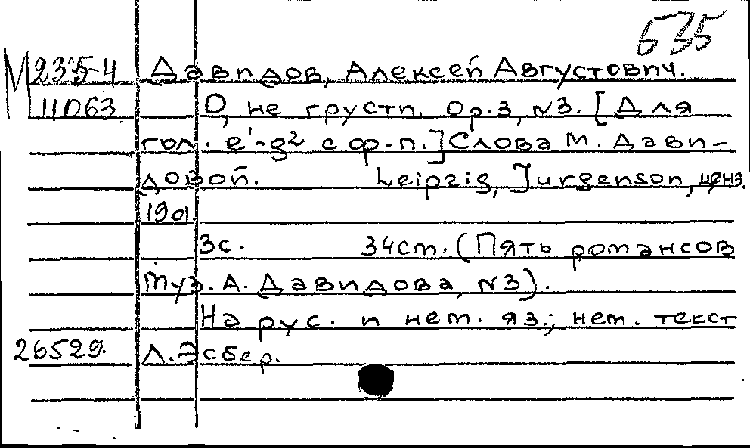 535
М 235-4 Давидов, Алексей Августович.
11063 О, не грусти. Op.3, №3. [Для
гол. e'-g² с ф-п.] Слова М. Дави-
довой. Leipzig, Jurgenson, ценз.
1901.
3с. 34см. (Пять романсов
муз. А. Давидова, №3).
На рус. и нем. яз.; нем. текст
26529. Л. Эсбер.